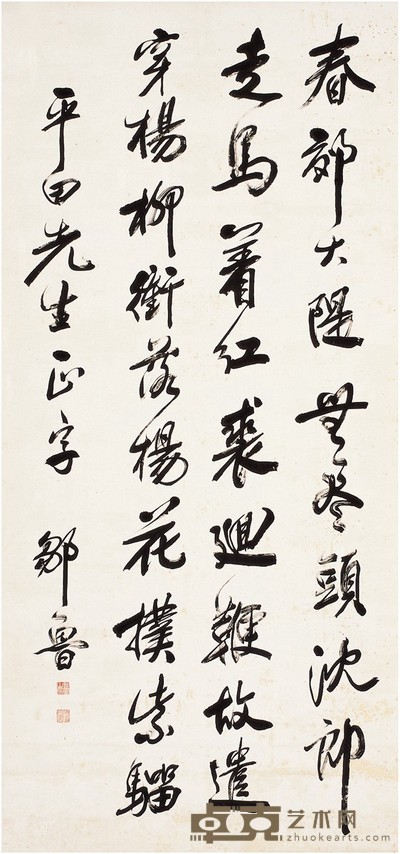 春郊大隄無尽頭沈郎
走馬着紅裘迴鞭故遣
穿楊柳衝落楊花撲紫騮
平田先生正字 鄒魯
艺术网
zhuokearts.com